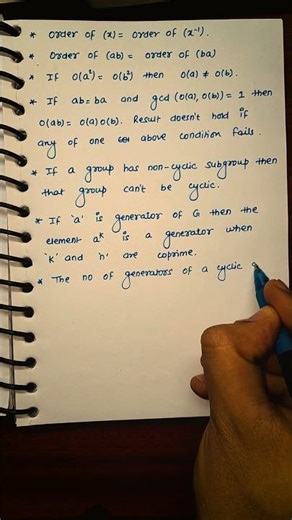 * Order of (x) = order of (x⁻¹).
* Order of (ab) = order of (ba)
* If O(a²) = O(b²) then O(a) ≠ O(b).
* If ab = ba and gcd (O(a), O(b)) = 1 then
O(ab) = O(a) O(b). Result doesn't hold if
any of one above condition fails.
* If a group has non-cyclic subgroup then
that group can't be cyclic.
* If 'a' is generator of G then the
element aᵏ is a generator when
'k' and 'n' are coprime.
* The no of generators of a cyclic